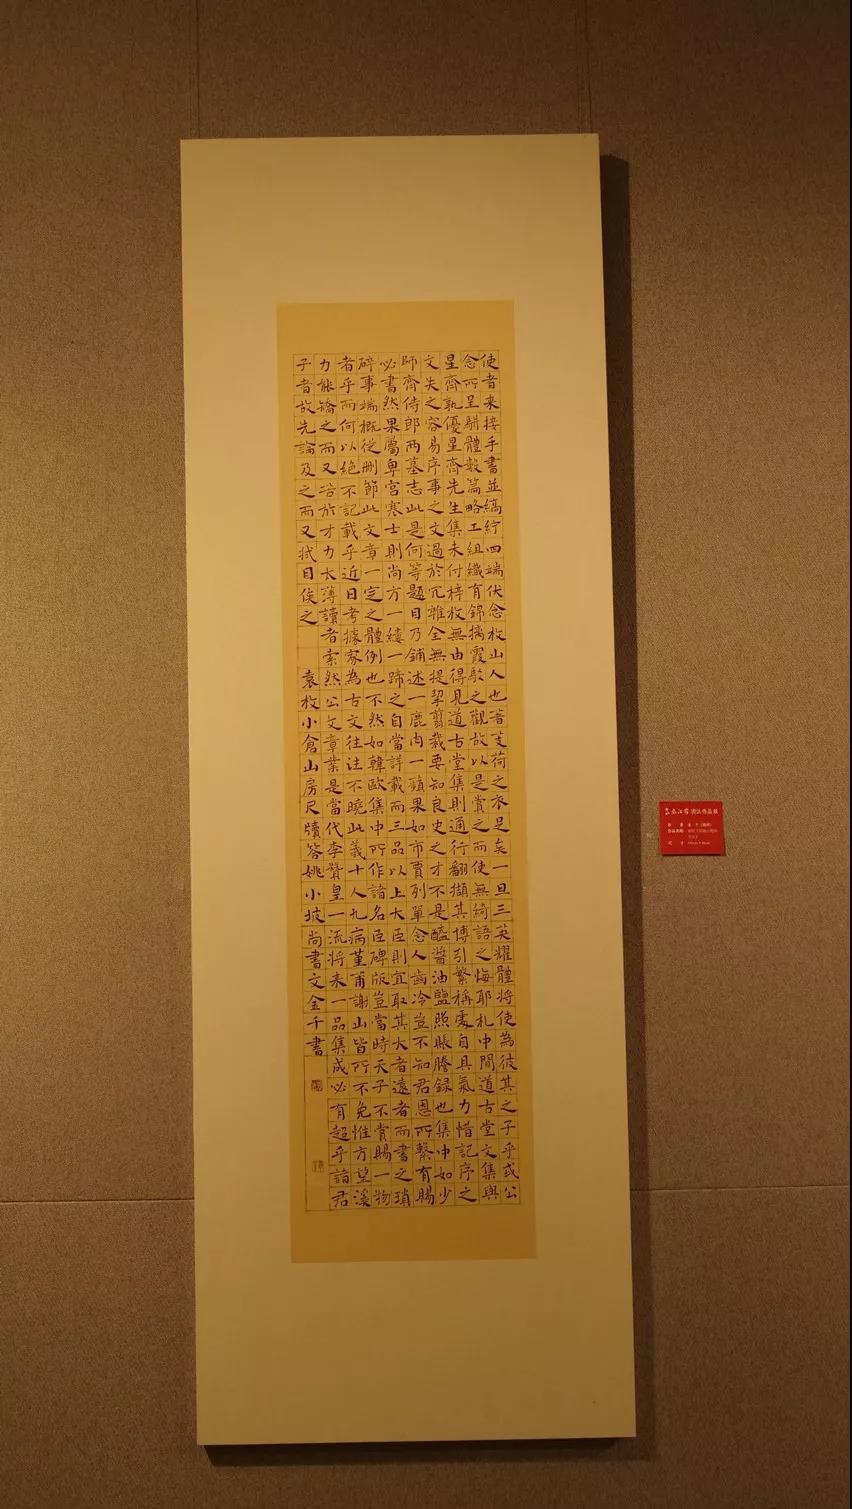 使者来接手書並縞紵四端伏念枚山人也著芰荷之衣足矣一旦三英耀體将使為彼其之子乎或公
念所呈駢體數篇略工組織有錦摛霞駁之觀故以是賞之而使無綺語之悔耶札中間道古堂文集與
星齊孰優星齊先生集未付梓枚無由得見道古堂集則通行翻擷其博引繁稱處自具氣力惜記序之
文失之容易序事之文過於冗雜全無提挈翦裁要知良史之才不是醯醬油鹽照賬謄録也集中如少
師齊侍郎两墓志此是何等題目乃鋪述一鹿肉一蘋果如市賣列單念人齒冷豈不知君恩所繫有賜
必書然果屬卑宫寒士則尚方一縷一蹄之自當詳載而三品以上大臣則宜取其大者遠者而書之瑣
碎事端概從刪節此文章一定之體例也不然如韓歐集中所作諸名臣碑版豈當時天子不賞賜一物
者乎而何以絕不記載乎近日考據家為古文往往不曉此義十人九病堇甫謝山皆所不免惟方望溪
力能矯之而又苦於才力太薄讀者索然公文章業是當代李贊皇一流将来一品集成必有超乎諸君
子者故先論及之而又拭目俟之 袁枚小倉山房尺牘答姚小坡尚書文金千書